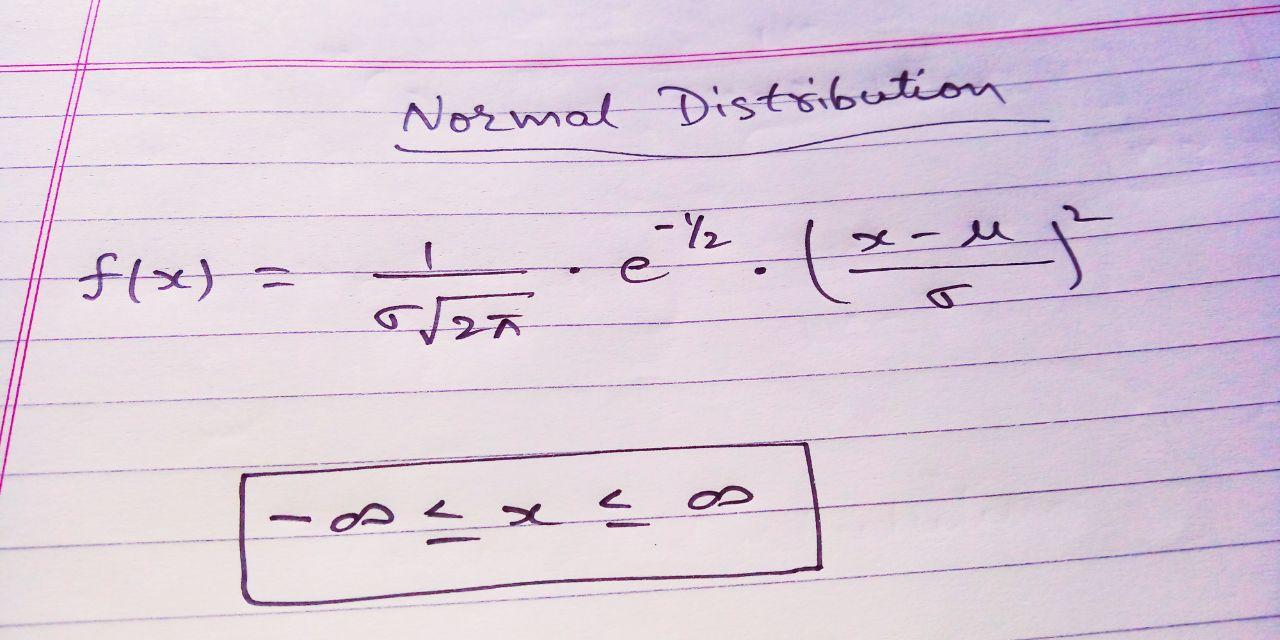 Normal Distribution
f(x) = 1/(σ√2π) · e^(-1/2) · ((x - μ)/σ)²
-∞ ≤ x ≤ ∞